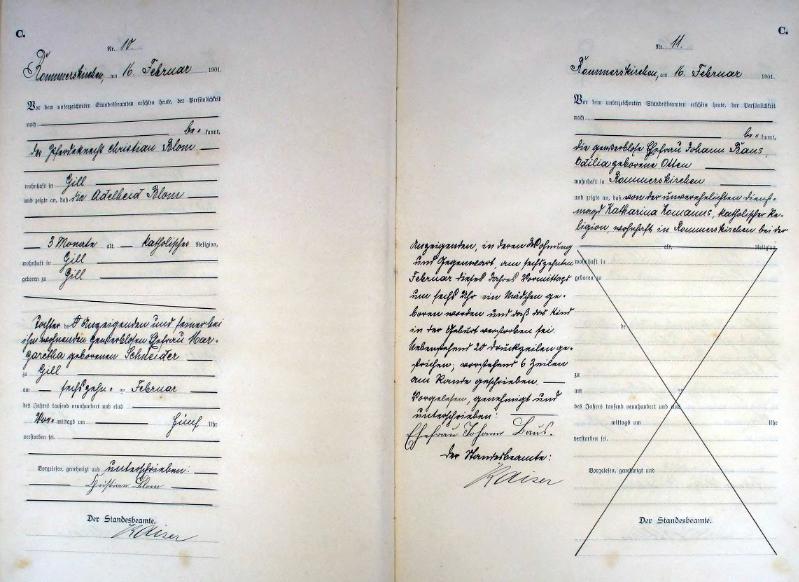 C.
Nr. 10
Rommerskirchen, am 16. Februar 1901.
Vor dem unterzeichneten Standesbeamten erschien heute, der Persönlichkeit
nach
be- kannt,
der Pferdeknecht Christian Blom
wohnhaft in Gill
und zeigte an, daß die Adelheid Blom
3 Monate alt, katholischer Religion,
wohnhaft in Gill
geboren zu Gill
Tochter des Anzeigenden und seiner bei
ihm wohnenden gewerblosen Ehefrau Mar-
garetha geborenen Schneider
zu Gill
am sechszehn- ten Februar
des Jahres tausend neunhundert und eins
Vor- mittags um fünf Uhr
verstorben sei.
Vorgelesen, genehmigt und unterschrieben:
Christian Blom
Der Standesbeamte.
Kaiser
C.
Nr. 11.
Rommerskirchen, am 16. Februar 1901.
Vor dem unterzeichneten Standesbeamten erschien heute, der Persönlichkeit
nach
be- kannt,
die gewerblose Ehefrau Johann Baus,
Odilia geborene Otten
wohnhaft in Rommerskirchen
und zeigte an, daß von der unverehelichten Dienst-
magd Katharina Lomanns, katholischer Re-
ligion, wohnhaft in Rommerskirchen bei der
alt, Religion,
wohnhaft in
geboren zu
de
zu
am
des Jahres tausend neunhundert und eins
mittags um Uhr
verstorben sei.
Vorgelesen, genehmigt und
Der Standesbeamte.
Anzeigenden, in deren Wohnung
und Gegenwart am sechszehnten
Februar dieses Jahres Vormittags
um sechs Uhr ein Mädchen ge-
boren worden und daß das Kind
in der Geburt verstorben sei.
Nebenstehend 20 Druckzeilen ge-
strichen, vorstehend 6 Zeilen
am Rande geschrieben.
Vorgelesen, genehmigt und
unterschrieben:
Ehefrau Johann Baus.
Der Standesbeamte:
Kaiser